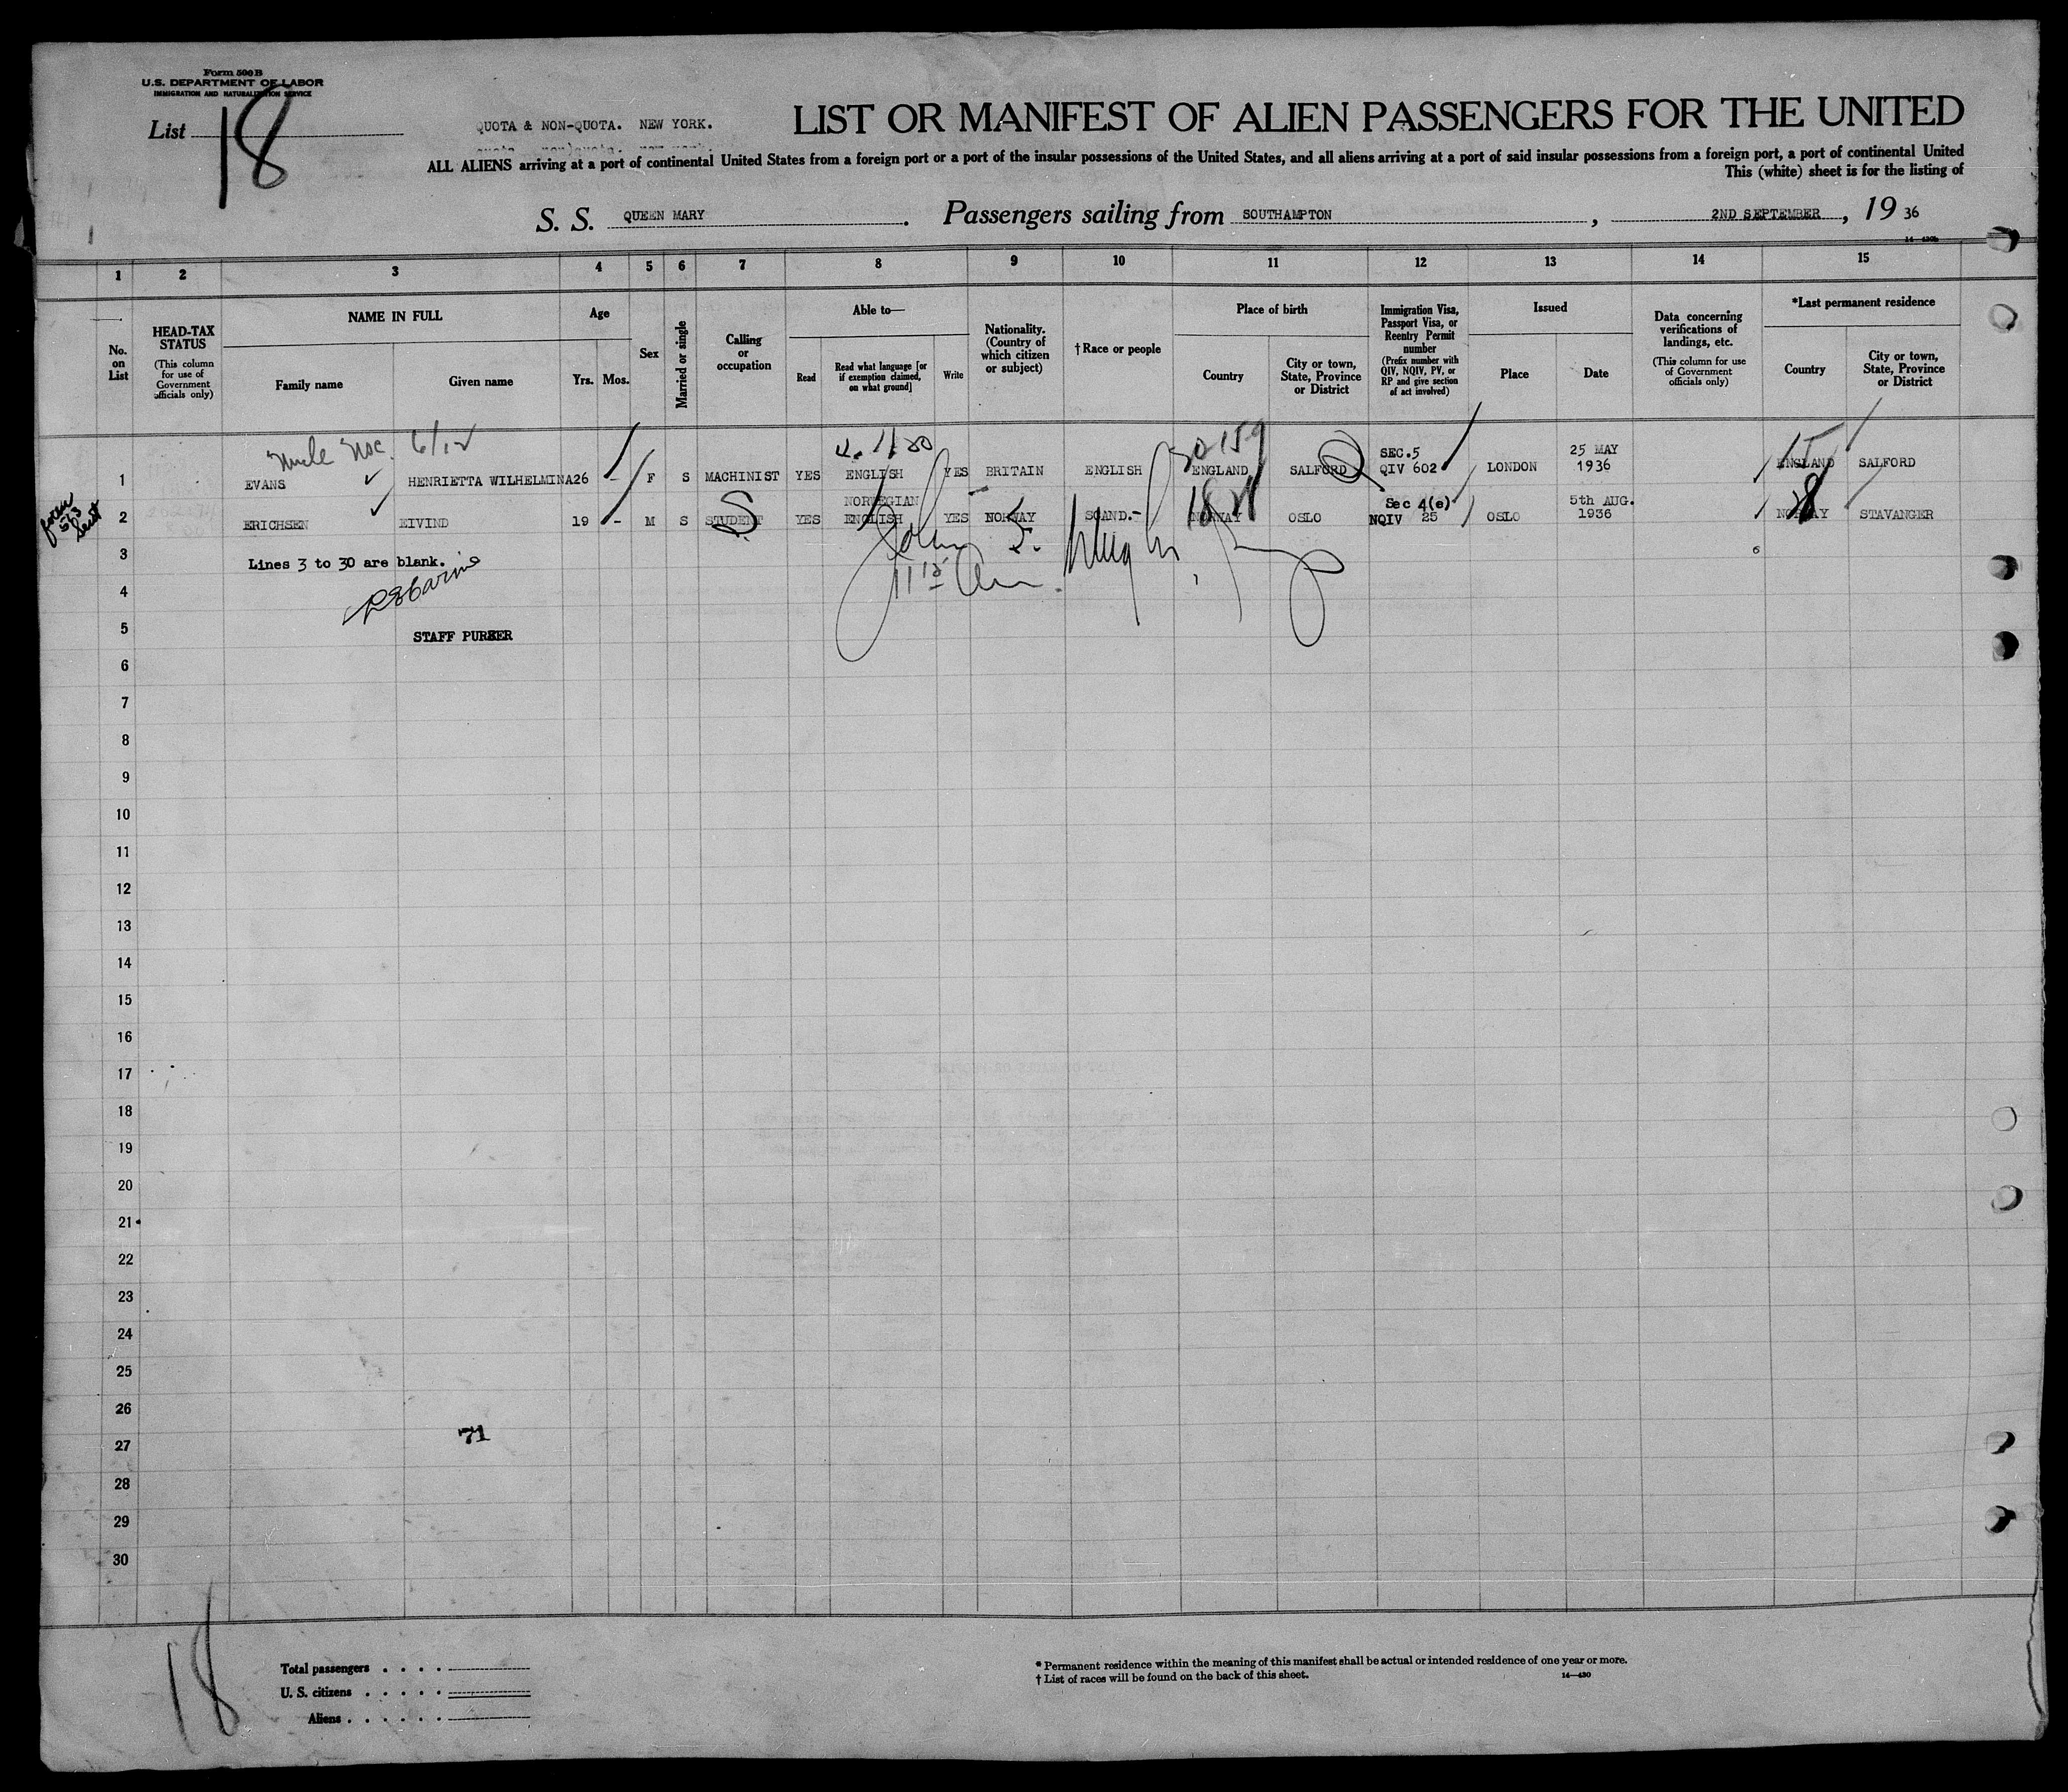 Form 500 B
U.S. DEPARTMENT OF LABOR
IMMIGRATION AND NATURALIZATION SERVICE
List 18
QUOTA & NON-QUOTA. NEW YORK.
LIST OR MANIFEST OF ALIEN PASSENGERS FOR THE UNITED
ALL ALIENS arriving at a port of continental United States from a foreign port or a port of the insular possessions of the United States, and all aliens arriving at a port of said insular possessions from a foreign port, a port of continental United
This (white) sheet is for the listing of
S. S. QUEEN MARY. Passengers sailing from SOUTHAMPTON, 2ND SEPTEMBER, 19 36
1 2 3 4 5 6 7 8 9 10 11 12 13 14 15
No. on List
HEAD-TAX STATUS
(This column for use of Government officials only)
NAME IN FULL
Family name
Given name
Age
Yrs. Mos.
Sex
Married or single
Calling or occupation
Able to—
Read
Read what language [or if exemption claimed, on what ground]
Write
Nationality. (Country of which citizen or subject)
† Race or people
Place of birth
Country
City or town, State, Province or District
Immigration Visa, Passport Visa, or Reentry Permit number
(Prefix number with QIV, NQIV, PV, or RP and give section of act involved)
Issued
Place
Date
Data concerning verifications of landings, etc.
(This column for use of Government officials only)
*Last permanent residence
Country
City or town, State, Province or District
6/12
30159
SEC.5 25 MAY
1 EVANS HENRIETTA WILHELMINA 26 - F S MACHINIST YES ENGLISH YES BRITAIN ENGLISH ENGLAND SALFORD QIV 602 LONDON 1936 ENGLAND SALFORD
NORWEGIAN Sec 4(e) 5th AUG.
2 ERICHSEN EIVIND 19 - M S STUDENT YES ENGLISH YES NORWAY SCAND.- NORWAY OSLO NQIV 25 OSLO 1936 NORWAY STAVANGER
S
3 Lines 3 to 30 are blank.
4
5 STAFF PURSER
6
7
8
9
10
11
12
13
14
15
16
17
18
19
20
21
22
23
24
25
26
27 71
28
29
30
18
Total passengers
U. S. citizens
Aliens
* Permanent residence within the meaning of this manifest shall be actual or intended residence of one year or more.
† List of races will be found on the back of this sheet. 14—430